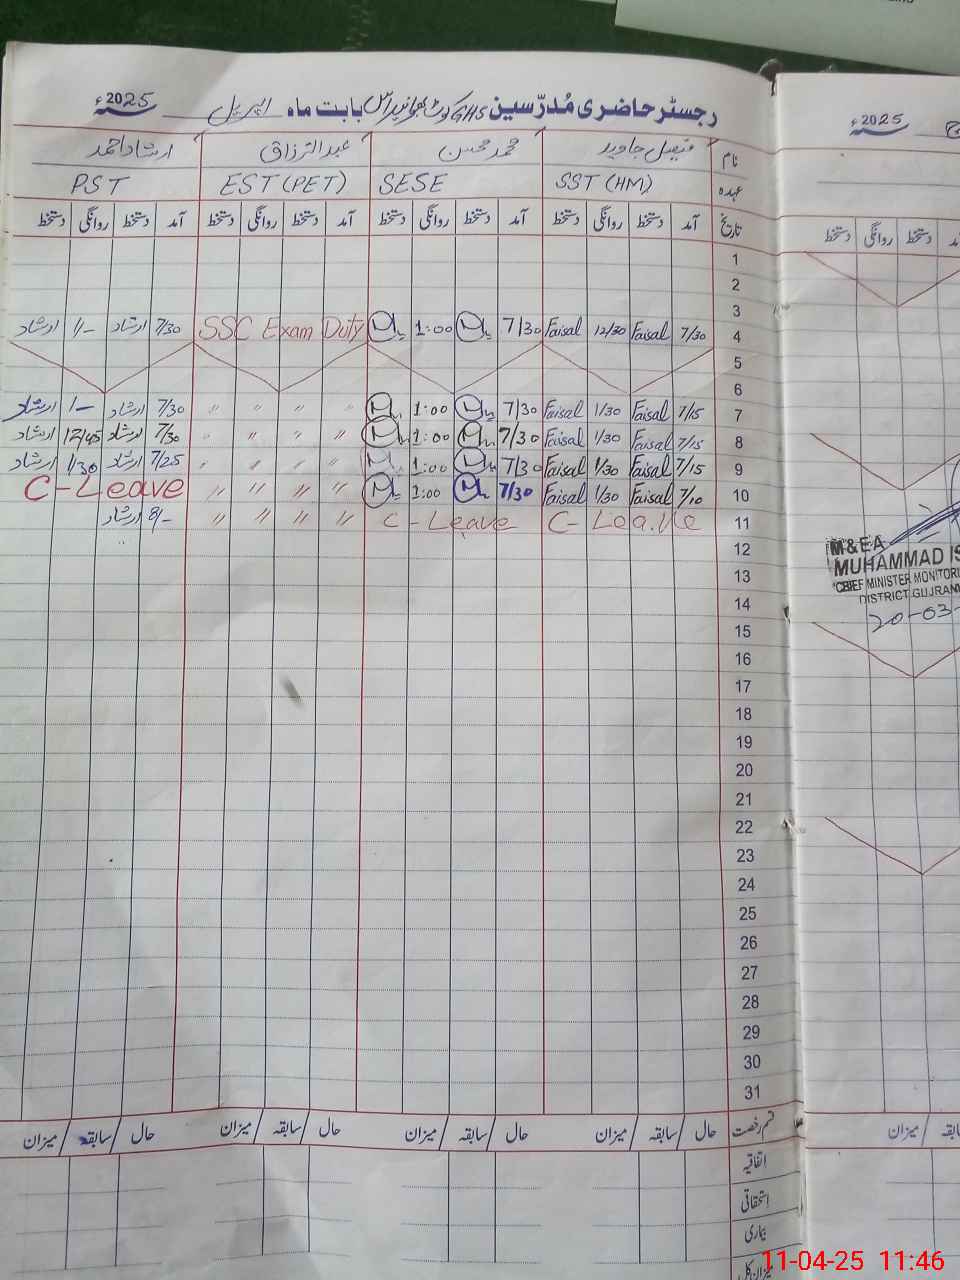 رجسٹر حاضری مُدرّسین GHS کوٹ بھوانیداس بابت ماہ اپریل 2025ء
نام فیصل جاوید محمد محسن عبدالرزاق ارشاد احمد
عہدہ SST (HM) SESE EST (PET) PST
تاریخ آمد دستخط روانگی دستخط آمد دستخط روانگی دستخط آمد دستخط روانگی دستخط آمد دستخط روانگی دستخط
1
2
3
4 7/30 Faisal 12/30 Faisal 7/30 1:00 SSC Exam Duty 7/30 ارشاد 1/- ارشاد
5
6
7 7/15 Faisal 1/30 Faisal 7/30 1:00 〃 〃 〃 〃 7/30 ارشاد 1/- ارشاد
8 7/15 Faisal 1/30 Faisal 7/30 1:00 〃 〃 〃 〃 7/30 ارشاد 12/45 ارشاد
9 7/15 Faisal 1/30 Faisal 7/30 1:00 〃 〃 〃 〃 7/25 ارشاد 1/30 ارشاد
10 7/10 Faisal 1/30 Faisal 7/30 1:00 〃 〃 〃 〃 C-Leave
11 C-Leave C-Leave 〃 〃 〃 〃 8/- ارشاد
12
13
14
15
16
17
18
19
20
21
22
23
24
25
26
27
28
29
30
31
قسم رخصت حال / سابقہ / میزان حال / سابقہ / میزان حال / سابقہ / میزان حال / سابقہ / میزان
اتفاقیہ
استحقاقی
بیماری
میزان کل
2025ء
آمد دستخط روانگی دستخط
M&EA
MUHAMMAD IS
CHIEF MINISTER MONITORI
DISTRICT GUJRANW
20-03-
سابقہ / میزان
11-04-25 11:46